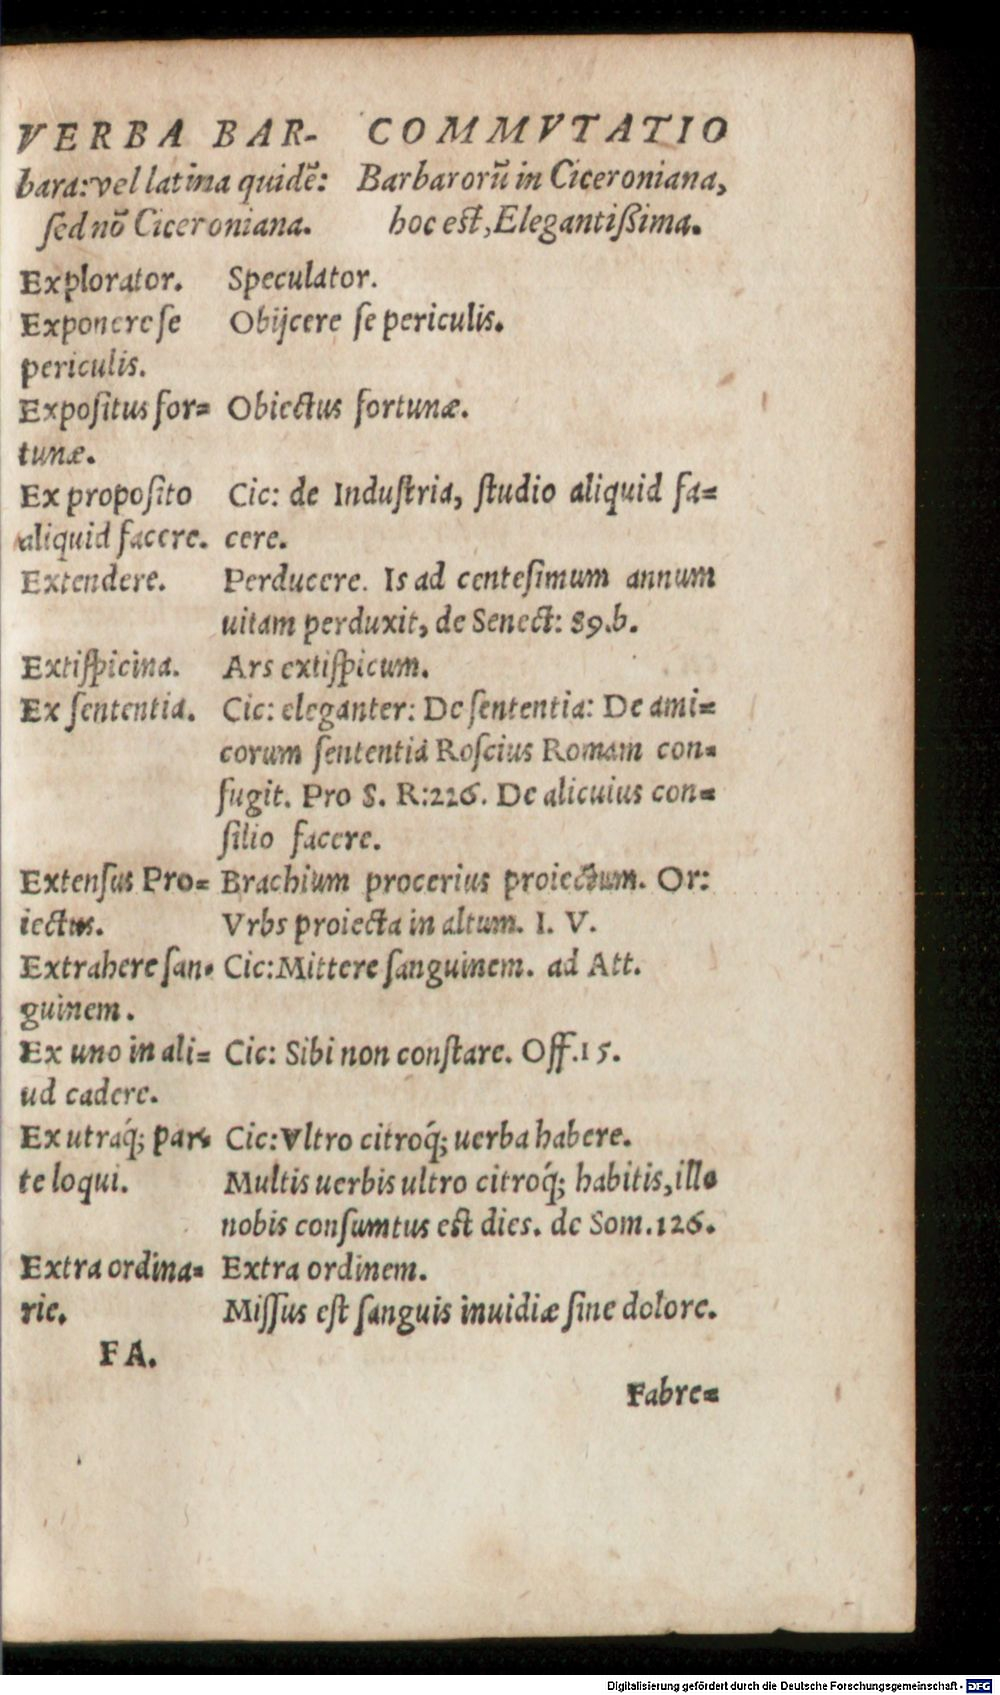 VERBA BAR- COMMVTATIO
bara: vel latina quidē: Barbarorū in Ciceroniana,
ſed nō Ciceroniana. hoc eſt, Elegantißima.
Explorator. Speculator.
Exponere ſe Obijcere ſe periculis.
periculis.
Expoſitus for= Obiectus fortunæ.
tunæ.
Ex propoſito Cic: de Induſtria, ſtudio aliquid fa=
aliquid facere. cere.
Extendere. Perducere. Is ad centeſimum annum
uitam perduxit, de Senect: 89.b.
Extiſpicina. Ars extiſpicum.
Ex ſententia. Cic: eleganter: De ſententia: De ami=
corum ſententia Roſcius Romam con=
fugit. Pro S. R:226. De alicuius con=
ſilio facere.
Extenſus Pro= Brachium procerius proiectum. Or:
iectus. Vrbs proiecta in altum. I. V.
Extrahere ſan= Cic: Mittere ſanguinem. ad Att.
guinem.
Ex uno in ali= Cic: Sibi non conſtare. Off.15.
ud cadere.
Ex utraq́; par= Cic: Vltro citroq́; uerba habere.
te loqui. Multis uerbis ultro citroq́; habitis, ille
nobis conſumtus eſt dies. de Som.126.
Extra ordina= Extra ordinem.
rie. Miſſus eſt ſanguis inuidiæ ſine dolore.
FA.
Fabre=
Digitalisierung gefördert durch die Deutsche Forschungsgemeinschaft - DFG